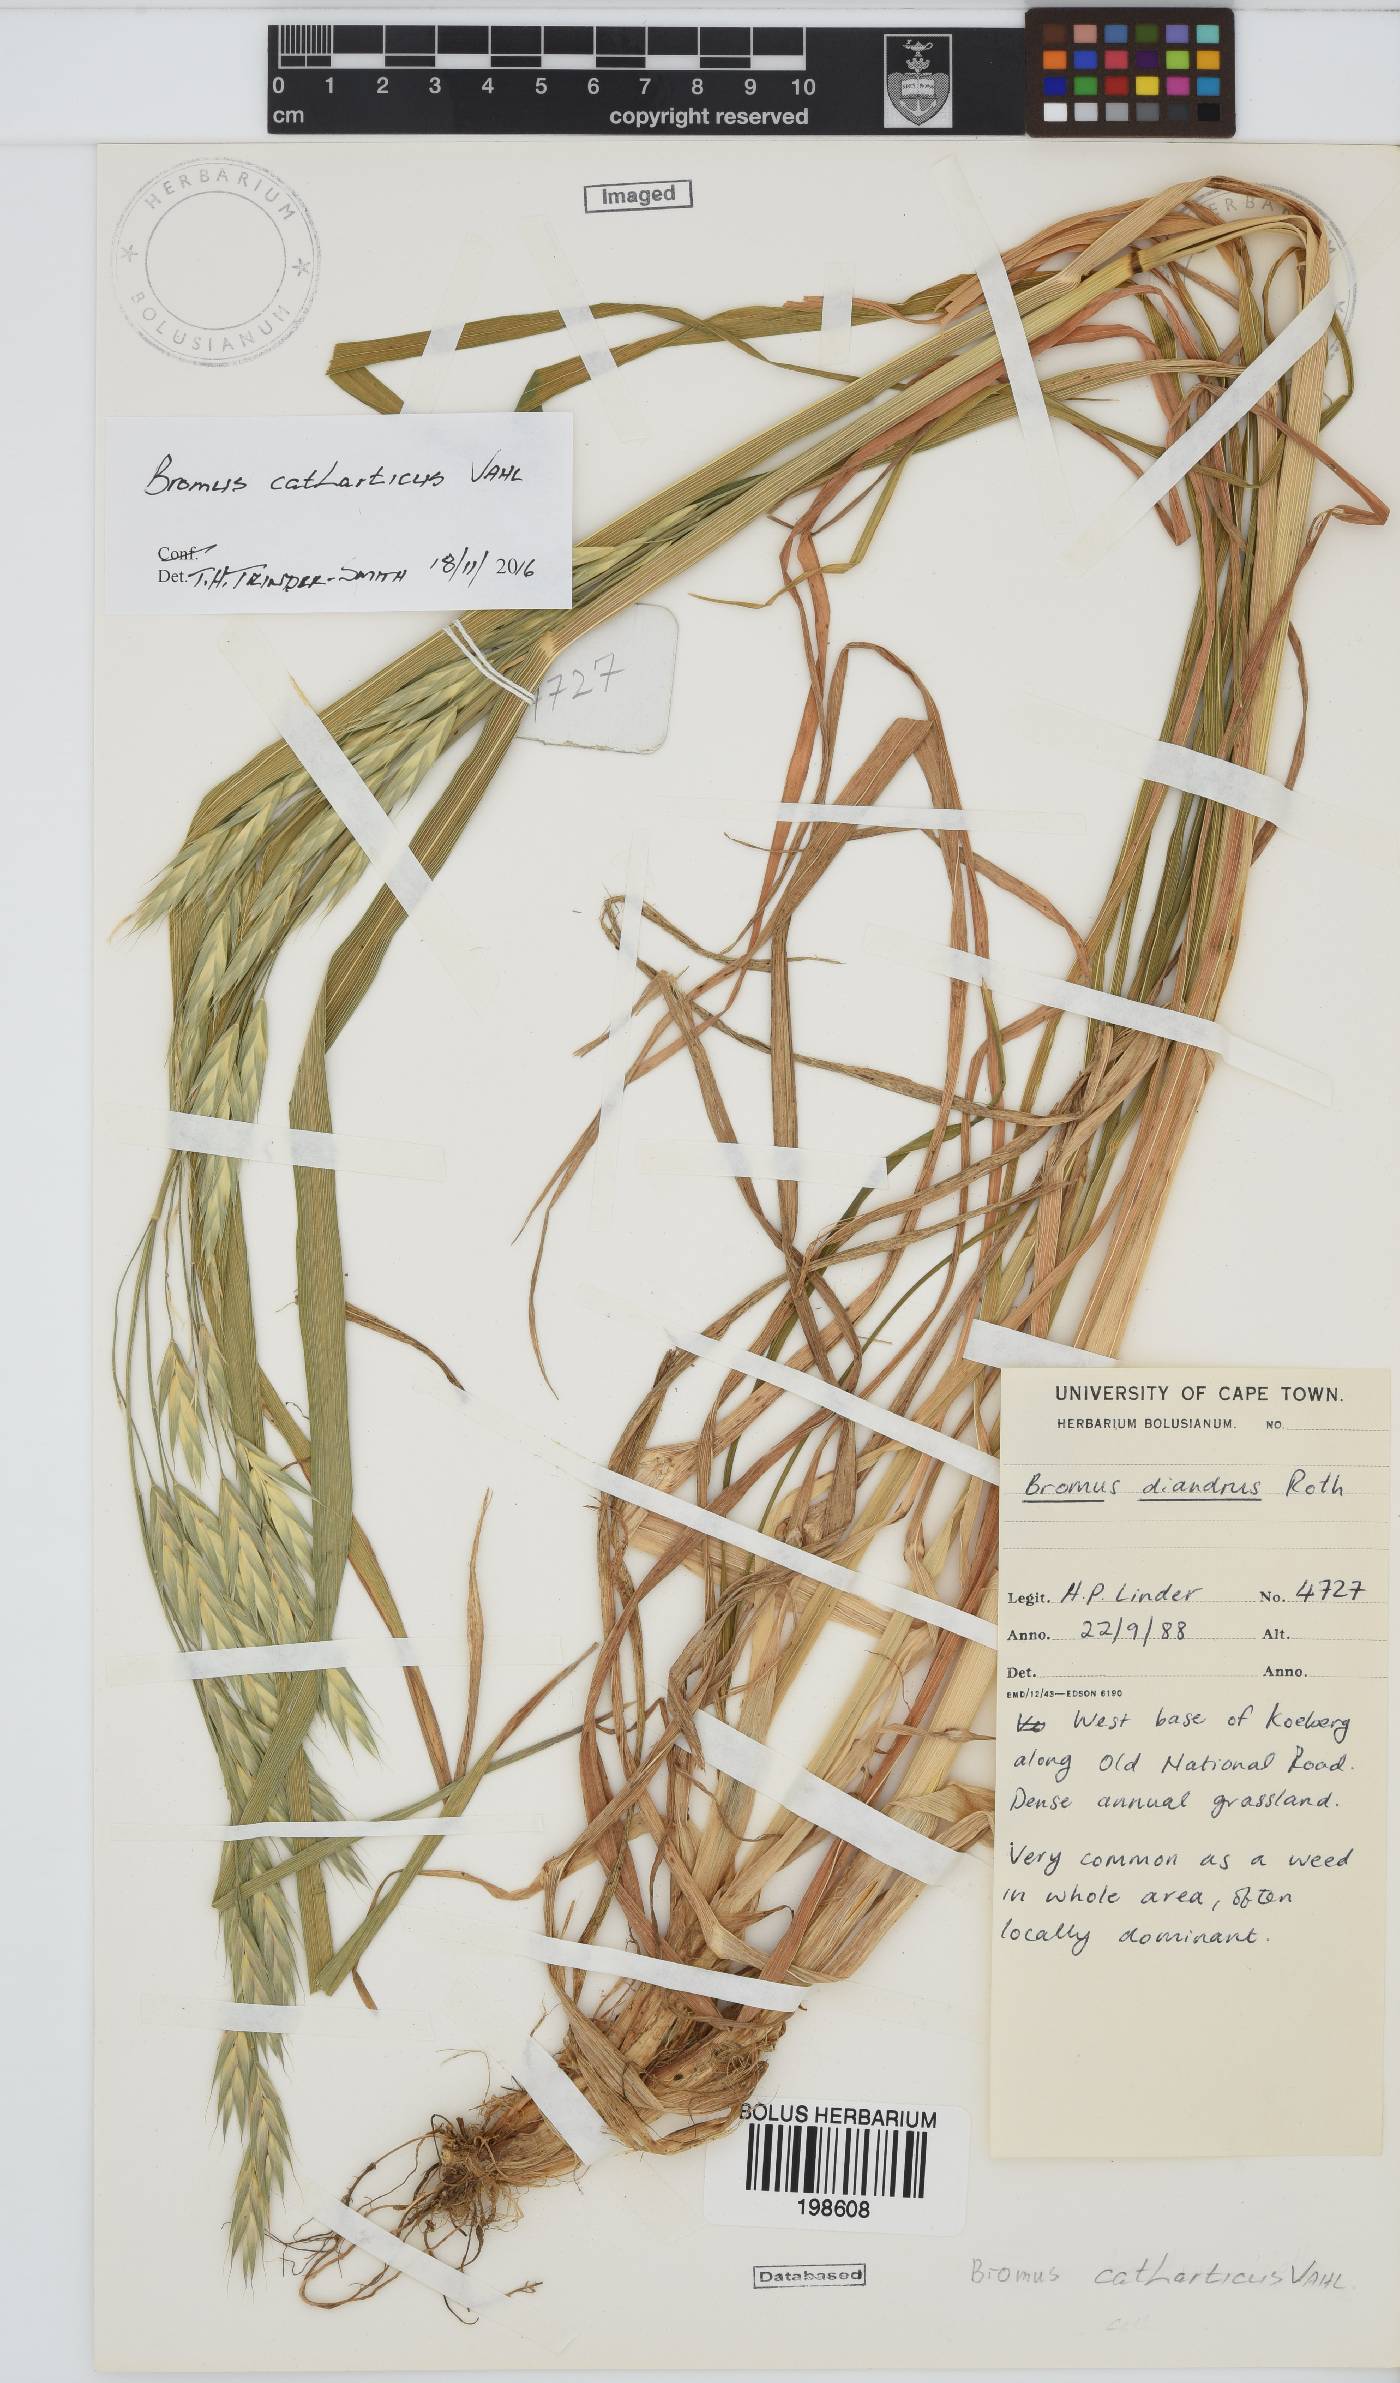 0 1 2 3 4 5 6 7 8 9 10
cm
copyright reserved
HERBARIUM
BOLUSIANUM
Imaged
Bromus catharticus VAHL
Conf.
Det. T.H. TRINDER-SMITH 18/11/2016
4727
UNIVERSITY OF CAPE TOWN.
HERBARIUM BOLUSIANUM. NO.
Bromus diandrus Roth
Legit. H.P. Linder No. 4727
Anno. 22/9/88 Alt.
Det. Anno.
BMD/12/43—EDSON 6190
West base of Koeberg
along Old National Road.
Dense annual grassland.
Very common as a weed
in whole area, often
locally dominant.
BOLUS HERBARIUM
198608
Databased
Bromus catharticus VAHL.